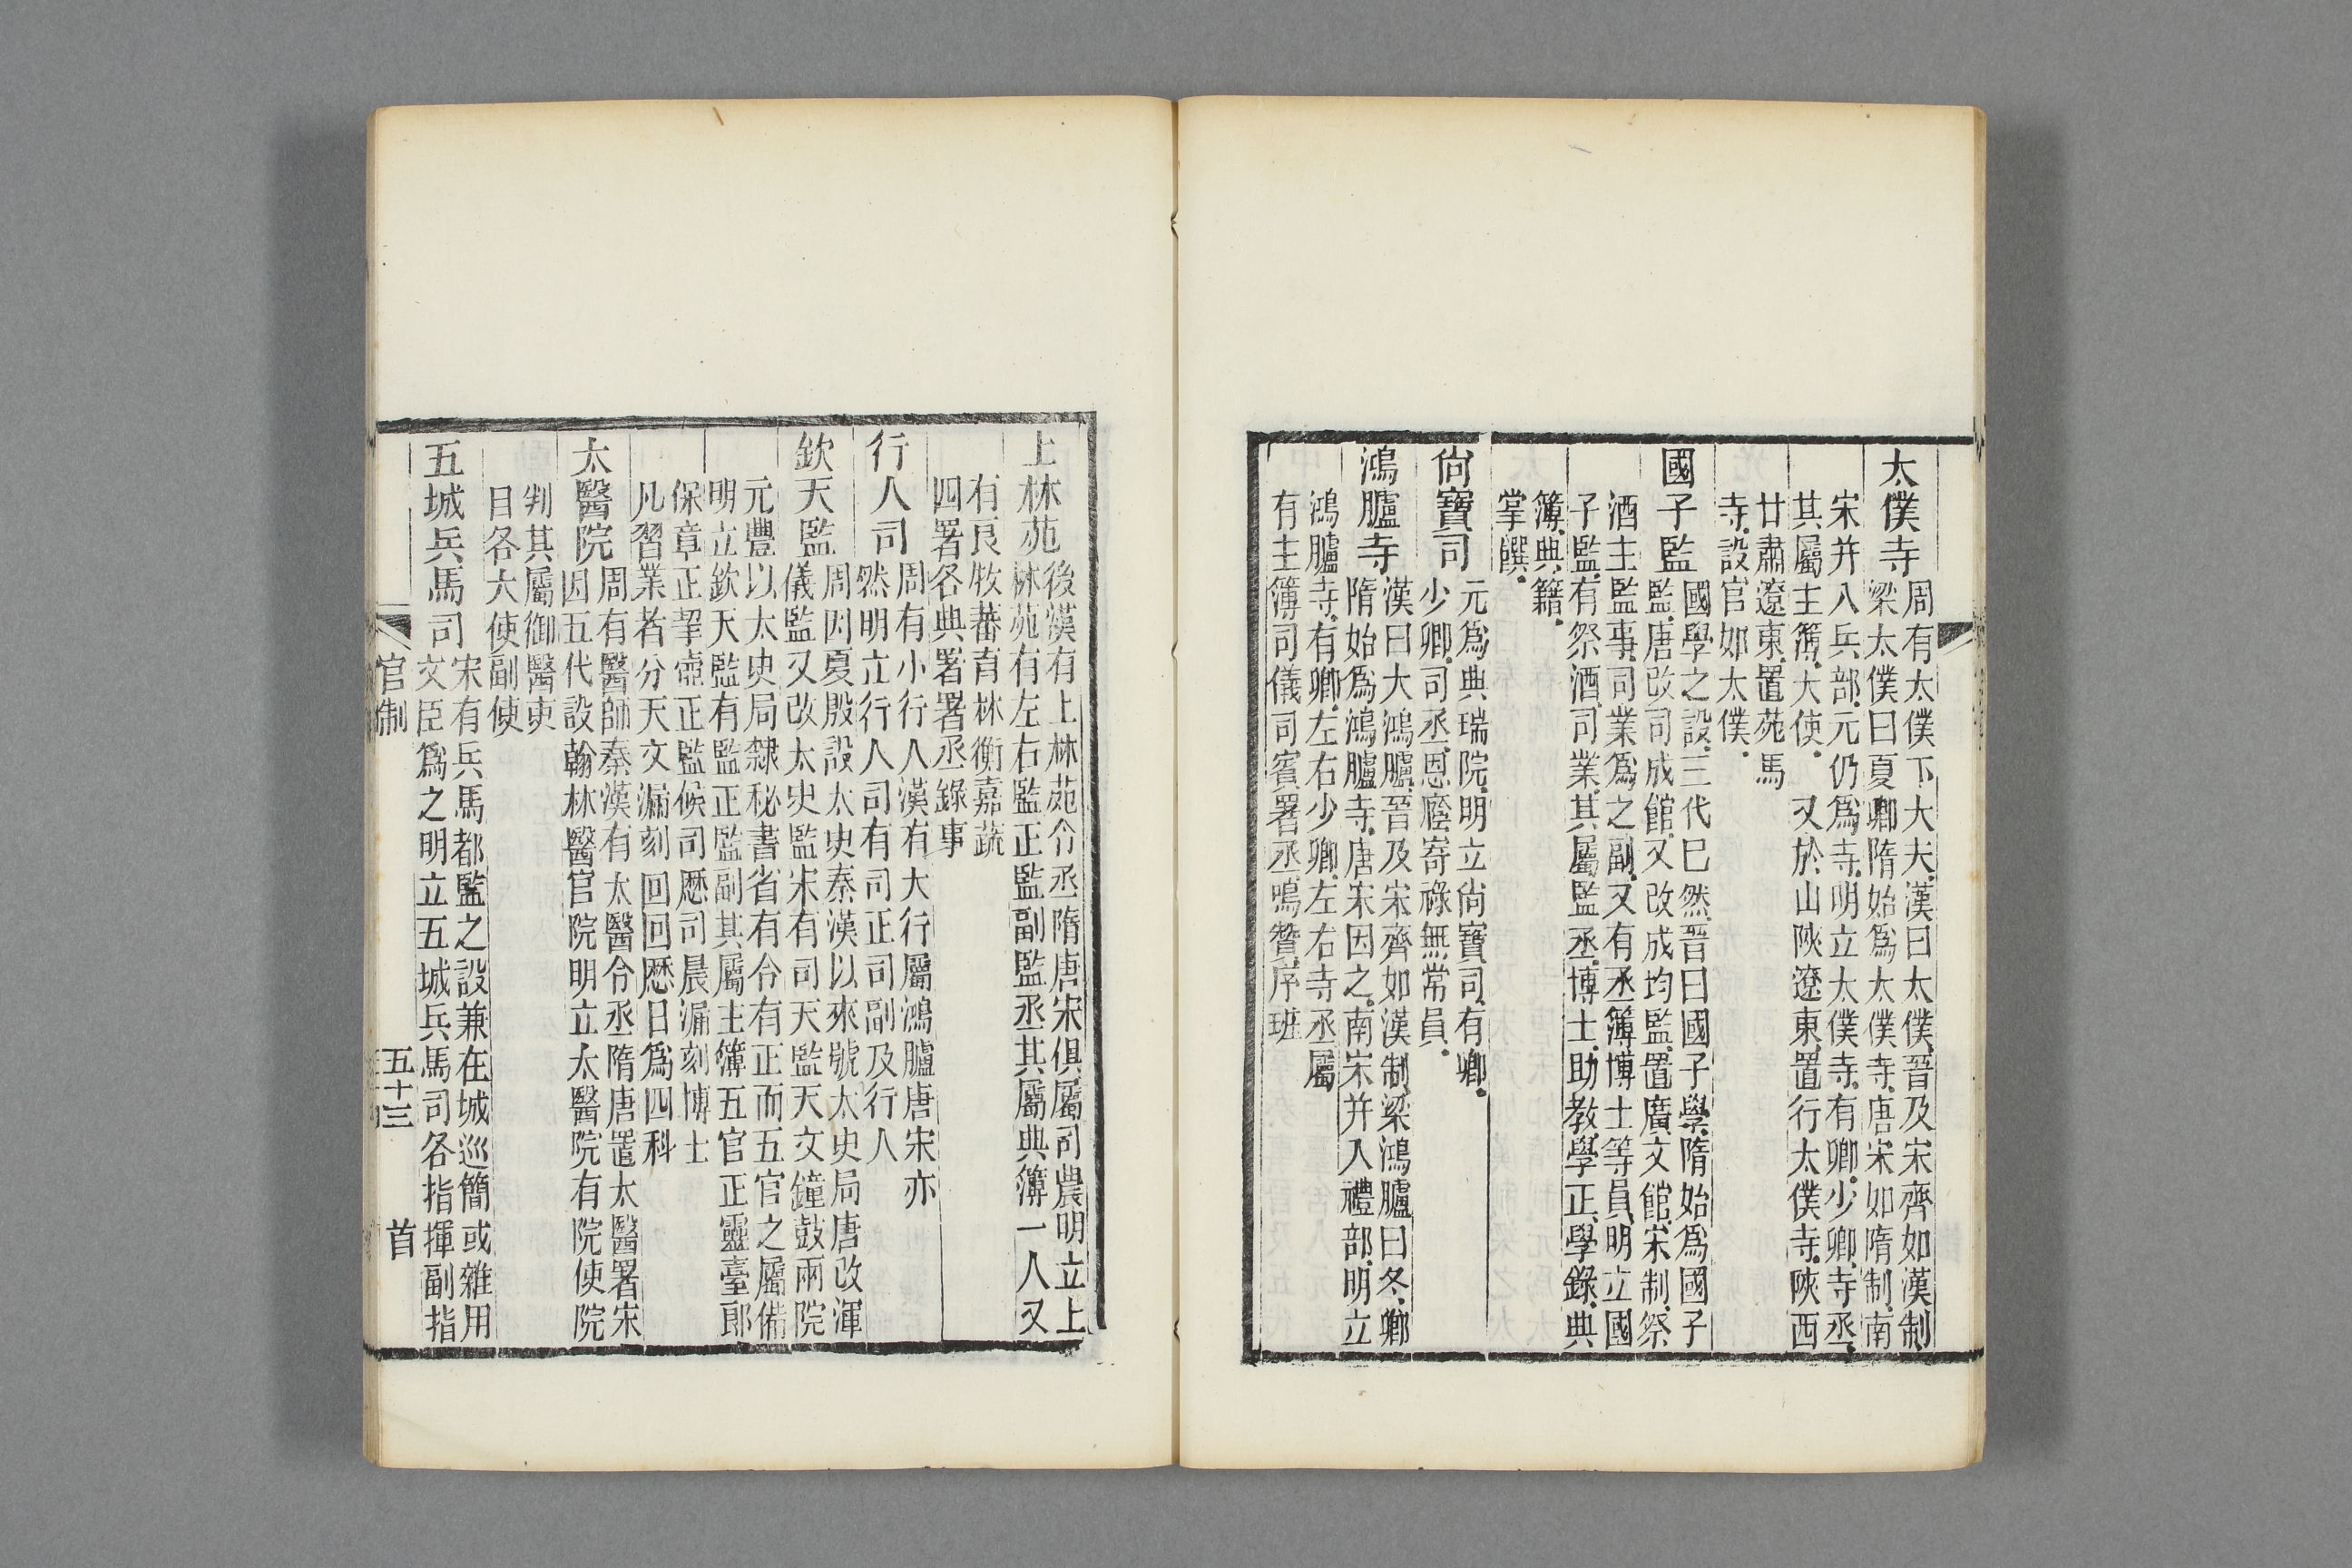 太僕寺
周有太僕下大夫漢曰太僕晉及宋齊如漢制
梁太僕曰夏卿隋始爲太僕寺唐宋如隋制南
宋并入兵部元仍爲寺明立太僕寺有卿少卿寺丞
其屬主簿大使 又於山陜遼東置行太僕寺陜西
甘肅遼東置苑馬
寺設官如太僕
國子監
國學之設三代已然晉曰國子學隋始爲國子
監唐改司成館又改成均監置廣文館宋制祭
酒主監事司業爲之副又有丞簿博士等員明立國
子監有祭酒司業其屬監丞博士助教學正學錄典
簿典籍
掌饌
尚寶司
元爲典瑞院明立尚寶司有卿
少卿司丞恩廕寄祿無常員
鴻臚寺
漢曰大鴻臚晉及宋齊如漢制梁鴻臚曰冬卿
隋始爲鴻臚寺唐宋因之南宋并入禮部明立
鴻臚寺有卿左右少卿左右寺丞屬
有主簿司儀司賓署丞鳴贊序班
上林苑
後漢有上林苑令丞隋唐宋俱屬司農明立上
林苑有左右監正監副監丞其屬典簿一人又
有良牧蕃育林衡嘉蔬
四署各典署署丞錄事
行人司
周有小行人漢有大行屬鴻臚唐宋亦
然明立行人司有司正司副及行人
欽天監
周因夏殷設太史秦漢以來號太史局唐改渾
儀監又改太史監宋有司天監天文鐘鼓兩院
元豐以太史局隸秘書省有令有正而五官之屬備
明立欽天監有監正監副其屬主簿五官正靈臺郎
保章正挈壺正監候司厯司晨漏刻博士
凡習業者分天文漏刻回回厯日爲四科
太醫院
周有醫師秦漢有太醫令丞隋唐置太醫署宋
因五代設翰林醫官院明立太醫院有院使院
判其屬御醫吏
目各大使副使
五城兵馬司
宋有兵馬都監之設兼在城巡簡或雜用
文臣爲之明立五城兵馬司各指揮副指
官制
五十三
首